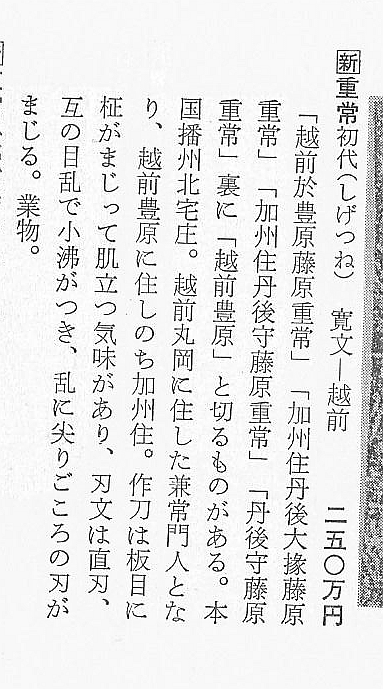 新 重常 初代（しげつね）　寛文ー越前　二五〇万円
「越前於豊原藤原重常」「加州住丹後大掾藤原
重常」「加州住丹後守藤原重常」「丹後守藤原
重常」裏に「越前豊原」と切るものがある。本
国播州北宅庄。越前丸岡に住した兼常門人とな
り、越前豊原に住しのち加州住。作刀は板目に
柾がまじって肌立つ気味があり、刃文は直刃、
互の目乱で小沸がつき、乱に尖りごころの刃が
まじる。業物。